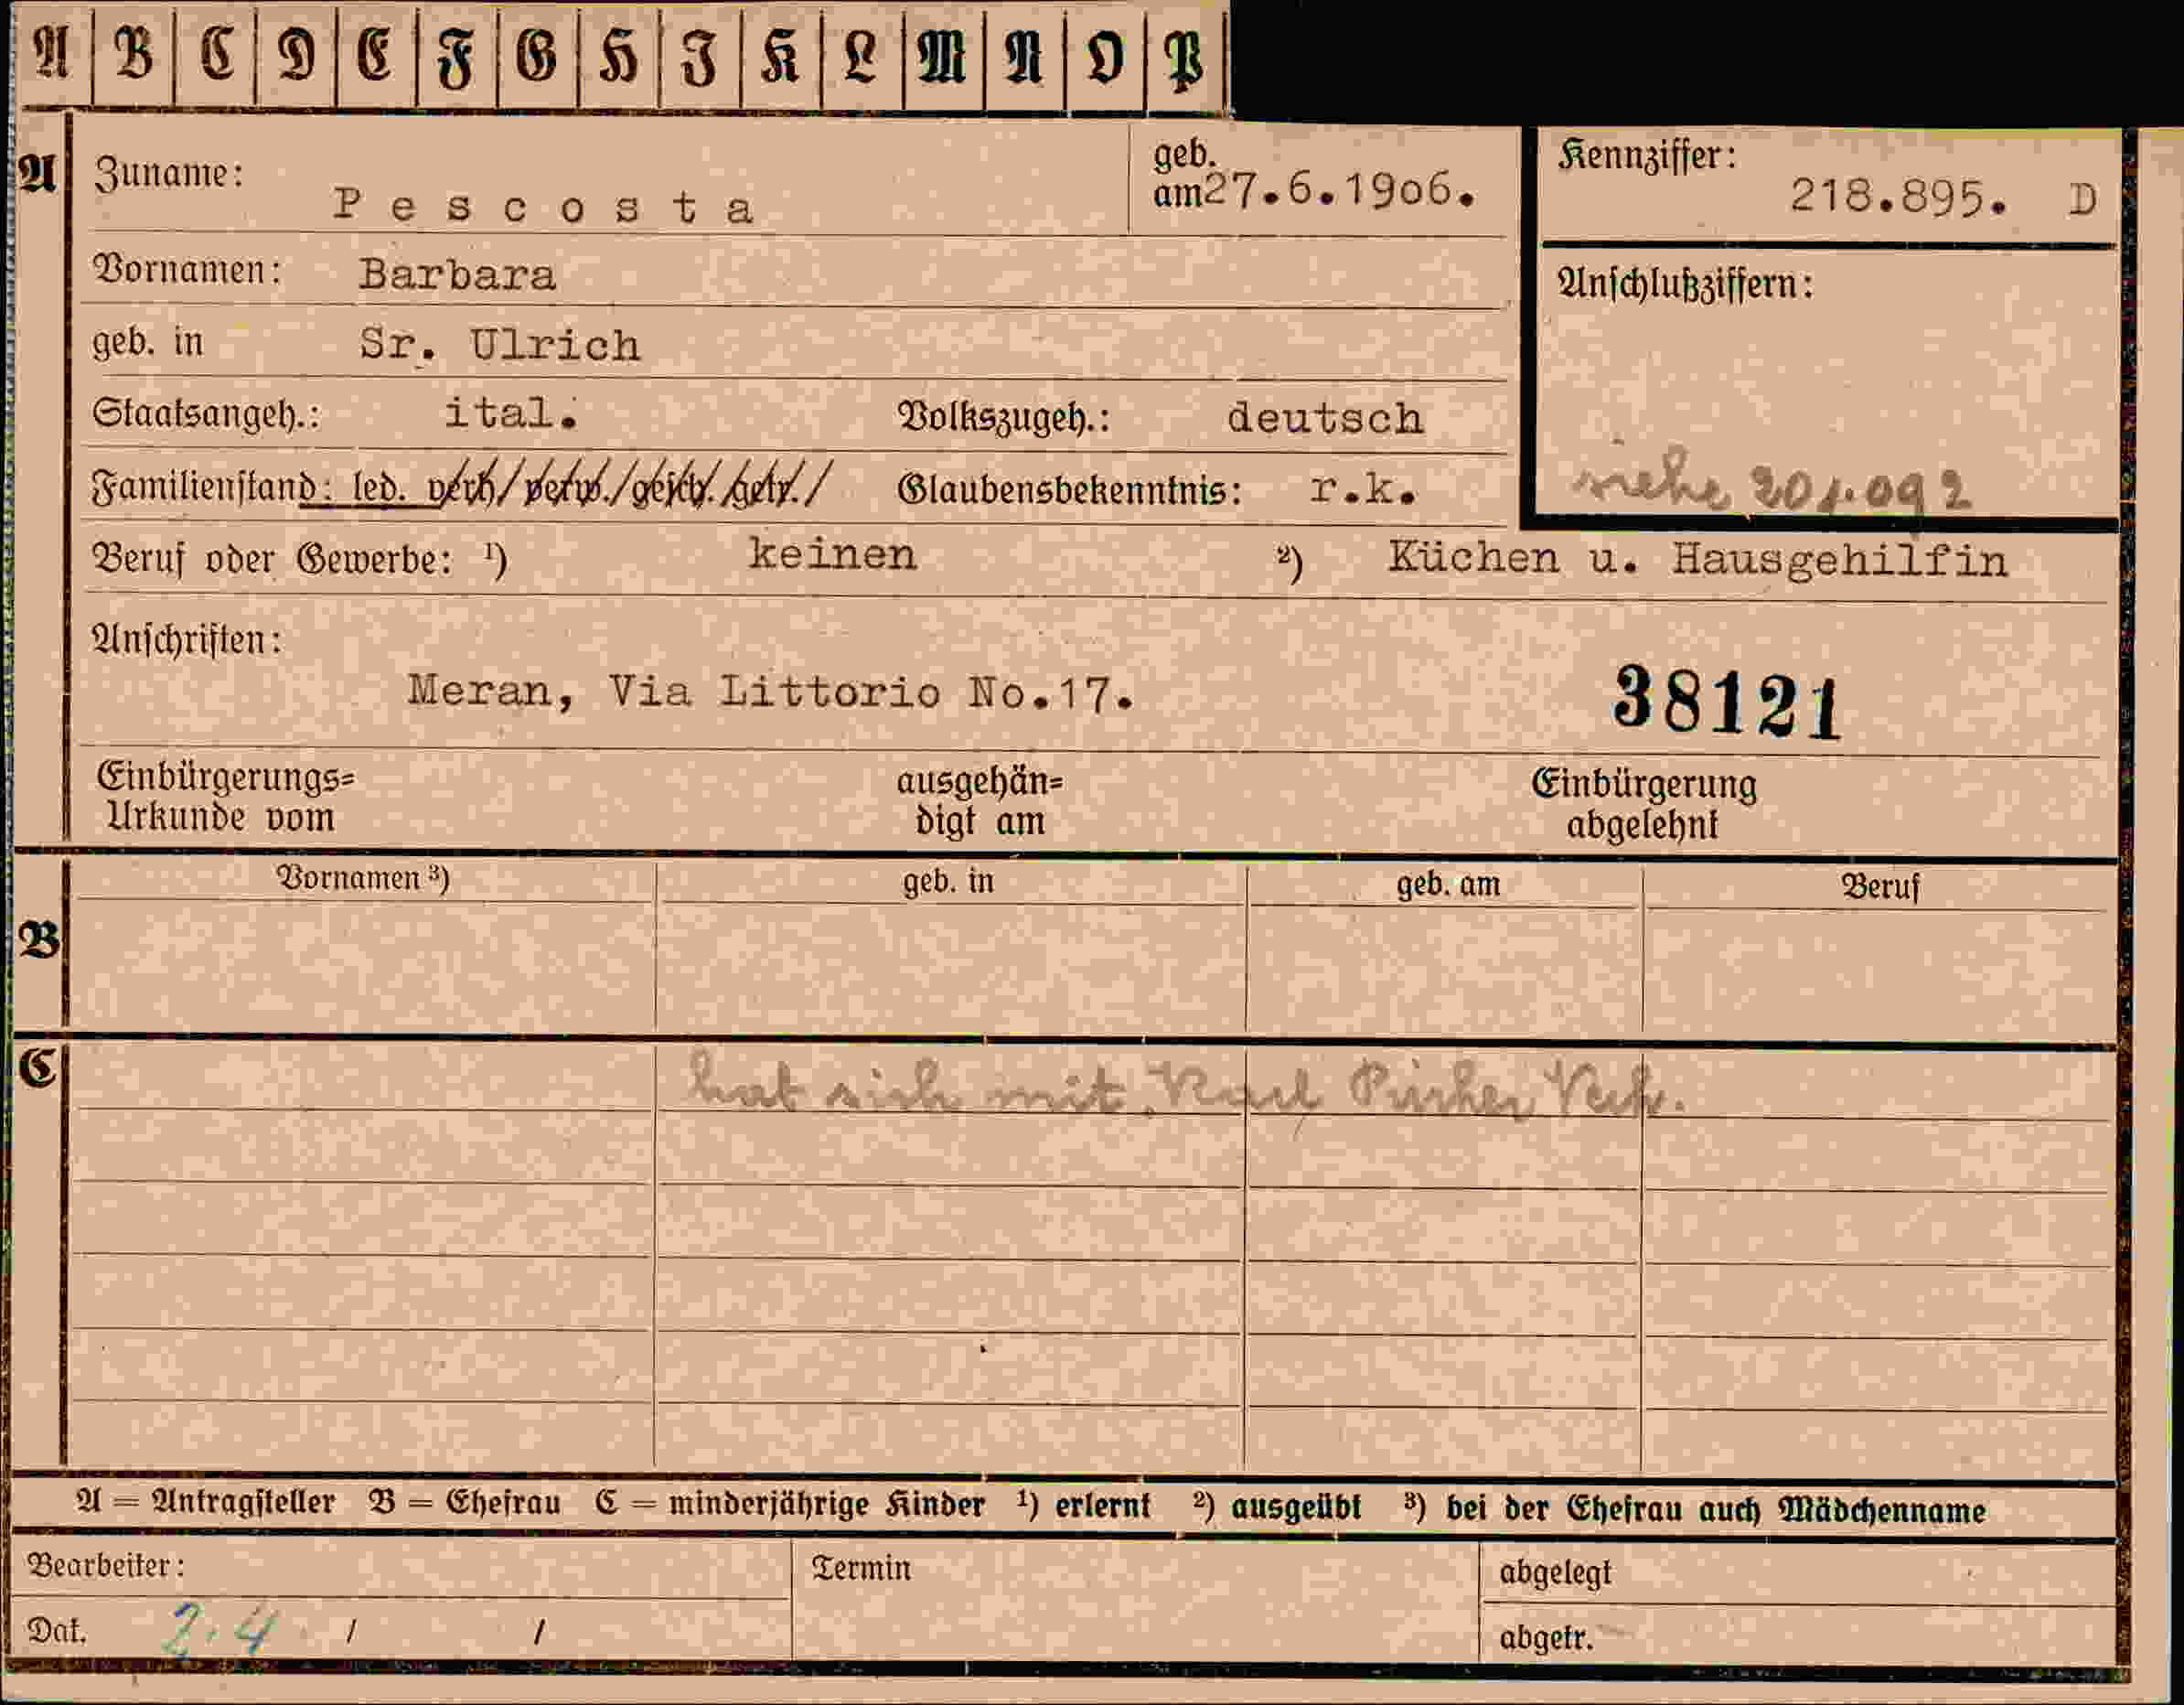 A B C D E F G H J K L M N O P
A Zuname: Pescosta geb. am 27.6.1906. Kennziffer: 218.895. D
Vornamen: Barbara Anschlußziffern:
geb. in Sr. Ulrich
Staatsangeh.: ital. Volkszugeh.: deutsch
Familienstand: led. verh/verw./gesch./getr./ Glaubensbekenntnis: r.k. siehe 201.092
Beruf oder Gewerbe: ¹) keinen ²) Küchen u. Hausgehilfin
Anschriften:
Meran, Via Littorio No.17. 38121
Einbürgerungs= ausgehän= Einbürgerung
Urkunde vom digt am abgelehnt
Vornamen ³) geb. in geb. am Beruf
B
C hat sich mit Karl Pircher Verh.
A = Antragsteller B = Ehefrau C = minderjährige Kinder ¹) erlernt ²) ausgeübt ³) bei der Ehefrau auch Mädchenname
Bearbeiter: Termin abgelegt
Dat. 2.4 / / abgetr.